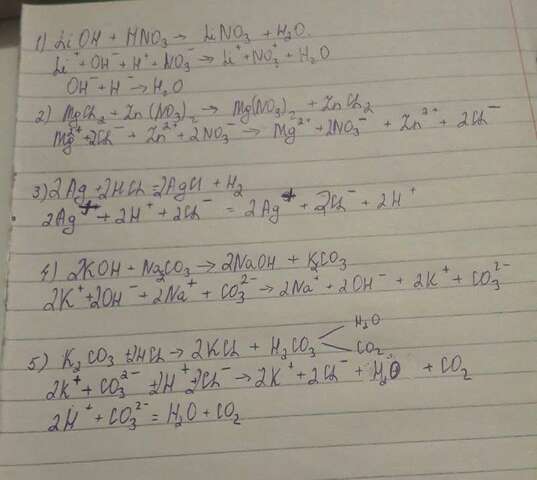 1) LiOH + HNO₃ → LiNO₃ + H₂O.
Li⁺ + OH⁻ + H⁺ + NO₃⁻ → Li⁺ + NO₃⁺ + H₂O
OH⁻ + H⁻ → H₂O
2) MgCl₂ + Zn(NO₃)₂ → Mg(NO₃)₂ + ZnCl₂
Mg²⁺ + 2Cl⁻ + Zn²⁺ + 2NO₃⁻ → Mg²⁺ + 2NO₃⁻ + Zn²⁺ + 2Cl⁻
3) 2Ag + 2HCl = 2AgCl + H₂
2Ag⁺ + 2H⁺ + 2Cl⁻ = 2Ag⁺ + 2Cl⁻ + 2H⁺
4) 2KOH + Na₂CO₃ → 2NaOH + K₂CO₃
2K⁺ + 2OH⁻ + 2Na⁺ + CO₃²⁻ → 2Na⁺ + 2OH⁻ + 2K⁺ + CO₃²⁻
5) K₂CO₃ + 2HCl → 2KCl + H₂CO₃
H₂O
CO₂
2K⁺ + CO₃²⁻ + 2H⁺ + 2Cl⁻ → 2K⁺ + 2Cl⁻ + H₂O + CO₂
2H⁺ + CO₃²⁻ = H₂O + CO₂